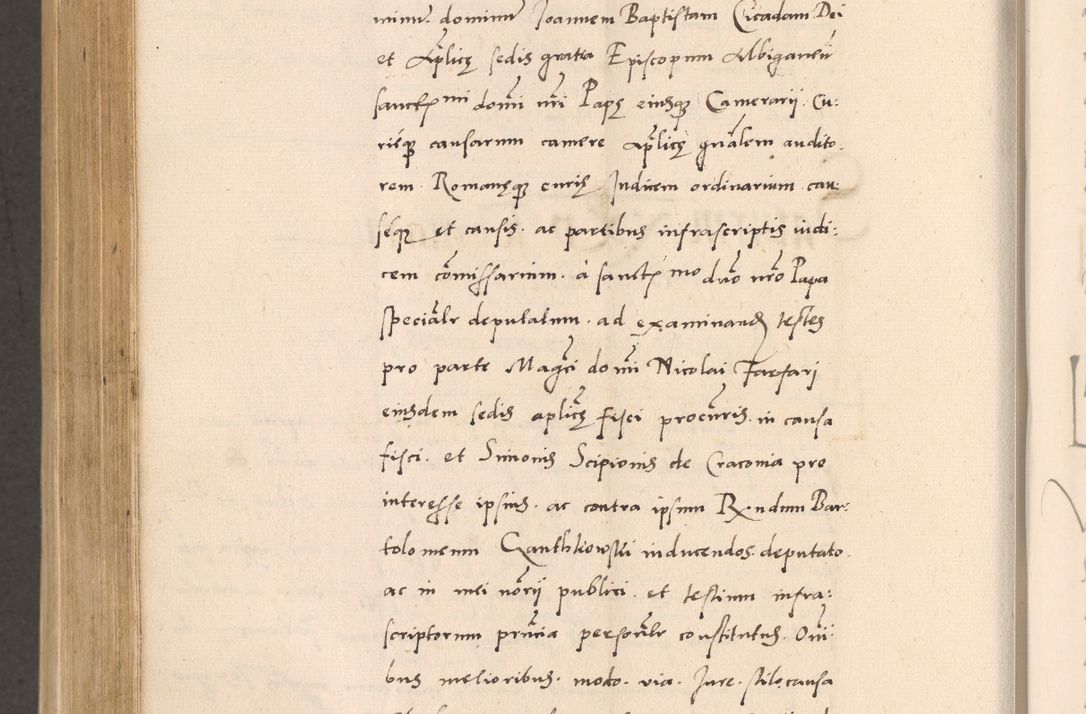 minũ dominũ Joannem Baptistam Cicadam Dei
et Aplicę sedis gratia Episcopum Albiganeñ
sanctmi domi nri Papę eiusq Camerarii. Cu:
rięq causarum camere Aplicę gnalem audito.
rem. Romanęq curię Judicem ordinarium. cau:
seq et causis. ac partibus infrascriptis iudi:
cem comissarium. à sanctmo dno nro Papa
specialr deputatum. ad examinand testes
pro parte Magci domi Nicolai Farfari
eiusdem sedis aplicę fisci procuris. in causa
fisci. et Simonis Scipionis de Craconia pro
interesse ipsius. ac contra ipsum Rndum Bar:
tolomeum Ganthkowski inducendos. deputato
ac in mei norii publici. et testium infra:
scriptorum pruncia personalr constitutus. Omi:
bus melioribus. modo. via. Jure. stilo causa